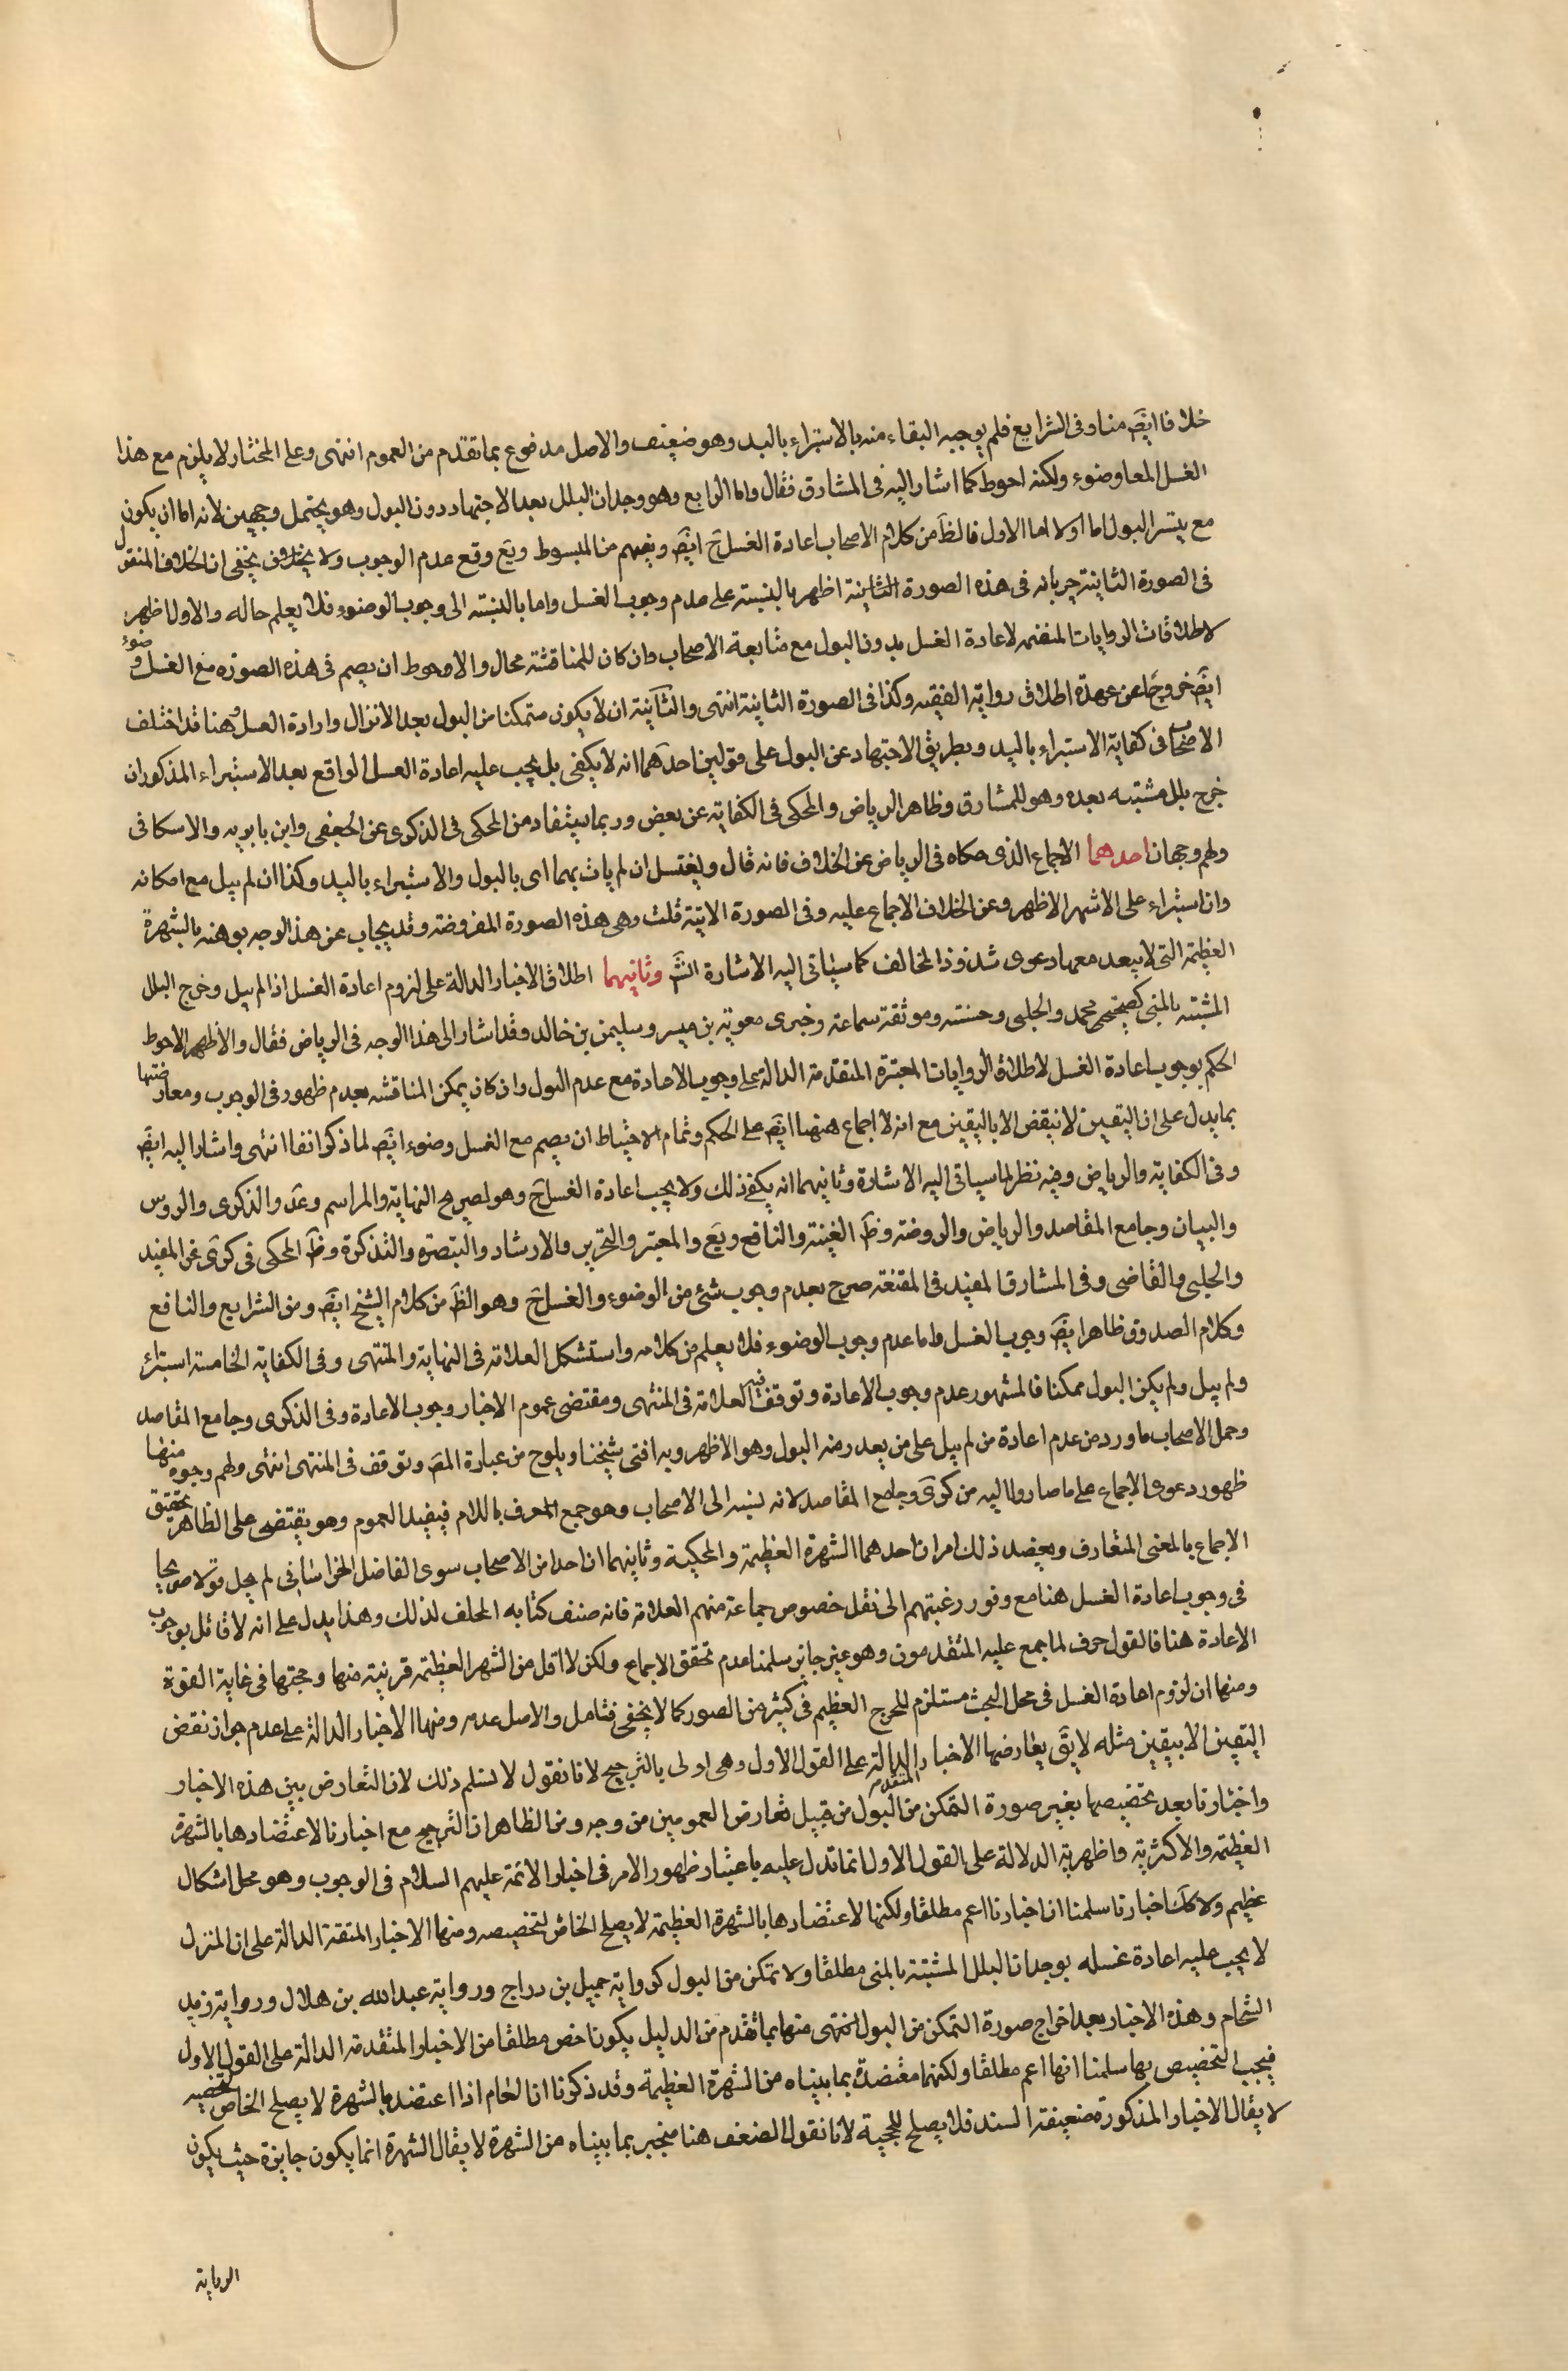 خلافا ايضَ منا وفى الشرايع فلم يوجبه البقاء منه بالاستبراء باليد وهو ضعيف والاصل مدفوع بما تقدم من العموم انتهى وعلى المختار لا يلزم مع هذا
الغسل المعا وضوء ولكنه احوط كما اشار اليه فى المشارق فقال واما الرابع وهو وجدان البلل بعد الاجتهاد دون البول وهو يحتمل وجهين لانه اما ان يكون
مع تيسر البول اما اولا اما الاول فالظَ من كلام الاصحاب اعادة الغسل حَ ايضَ ويفهم من المبسوط ويَع وقع عدم الوجوب ولا يخفى ان الخلاف المنقول
فى الصورة الثانية جريانه فى هذه الصورة الثانية اظهر بالنسبة على عدم وجوب الغسل واما بالنسبة الى وجوب الوضوء فلا يعلم حاله والاول اظهر
لاطلاقات الروايات المتضمنه لاعادة الغسل بدون البول مع متابعة الاصحاب وان كان للمناقشة محال والاحوط ان يصم فى هذه الصوره مع الغسل وضوء
ايضَ خروجا عن عهدة اطلاق رواية الفقيه وكذا فى الصورة الثانية انتهى والثانية ان لا يكون متمكنا من البول بعد الانزال وارادة الغسل وهنا قد اختلف
الاصحاب فى كفاية الاستبراء باليد وبطريق الاجتهاد عن البول على قولين احدهما انه لا يكفى بل يجب عليه اعادة الغسل الواقع بعد الاستبراء المذكور ان
خرج بلل مشتبه بعده وهو للمشارق وظاهر الرياض والمحكى فى الكفاية عن بعض وربما يستفاد من المحكى فى الذكرى عن الجعفى وابن بابويه والاسكافى
ولهم وجهان احدهما الاجماع الذى حكاه فى الرياض عن الخلاف فانه قال ويغتسل ان لم يات بهما اى بالبول والاستبراء باليد وكذا ان لم يبل مع امكانه
وان استبراء على الاشهر الاظهر وعن الخلاف الاجماع عليه وفى الصورة الاتية قلت وهى هذه الصورة المفروضة وقد يجاب عن هذا الوجه بوهنه بالشهرة
العظيمة التى لا يبعد معها دعوى شذوذ المخالف كما سياتى اليه الاشارة انشَ وثانيهما اطلاق الاخبار الدالة على لزوم اعادة الغسل اذا لم يبل وخرج البلل
المشتبه بالمنى كصحيحى محمد والحلبى وحسنته وموثقة سماعة وخبرى معوية بن ميسر وسليمن بن خالد وقد اشار الى هذا الوجه فى الرياض فقال والاظهر الاحوط
الحكم بوجوب اعادة الغسل لاطلاق الروايات المعتبرة المتقدمة الدالة على وجوب الاعادة مع عدم البول وان كان يمكن المناقشه بعدم ظهور فى الوجوب ومعارضتها
بما يدل على ان اليقين لا ينقض الا باليقين مع انه لا اجماع هنهنا ايضَ على الحكم وتمام الاحتياط ان يصم مع الغسل وضوء ايضَ لما ذكر انفا انتهى واشار اليه ايضَ
وفى الكفاية والرياض وفيه نظر لما سياتى اليه الاشارة وثانيهما انه يكفى ذلك ولا يجب اعادة الغسل حَ وهو لصريح النهاية والمراسم وعَد والذكرى والدروس
والبيان وجامع المقاصد والرياض والروضة وظَ الغنية والنافع ويَع والمعتبر والتحرير والارشاد والتبصرة والتذكرة وظَ المحكى فى كرَى عن المفيد
والحلبى والقاضى وفى المشارق المفيد فى المقنعة صرح بعدم وجوب شئ من الوضوء والغسل حَ وهو الظَ من كلام الشيخ ايضَ ومن الشرايع والنافع
وكلام الصدوق ظاهر ايضَ وجوب الغسل واما عدم وجوب الوضوء فلا يعلم من كلامه واستشكل العلامة فى النهاية والمنتهى وفى الكفاية الخامسة استبرئ
ولم يبل ولم يكن البول ممكنا فالمشهور عدم وجوب الاعادة وتوقف فيه العلامة فى المنتهى ومقتضى عموم الاخبار وجوب الاعادة وفى الذكرى وجامع المقاصد
وحمل الاصحاب ما ورد من عدم اعادة من لم يبل على من يعد ر منه البول وهو الاظهر وبه افتى شيخنا ويلوح من عبارة المصَ وتوقف فى المنتهى انتهى ولهم وجوه منها
ظهور دعوى الاجماع على ما صاروا اليه من كرَى وجامع المقاصد لانه نسبه الى الاصحاب وهو جمع المعرف باللام فيفيد العموم وهو يقتضى على الظاهر تحقيق
الاجماع بالمعنى المتعارف ويعضد ذلك امران احدهما الشهرة العظيمة والمحكية وثانيهما ان احدا من الاصحاب سوى الفاضل الخراسانى لم يجل قولا صريحا
فى وجوب اعادة الغسل هنا مع وفور رغبتهم الى نقل خصوص جماعة منهم العلامة فانه صنف كتابه المختلف لذلك وهذا يدل على انه لا قائل بوجوب
الاعادة هنا فالقول خرف لما جمع عليه المتقدمون وهو غير جايز سلمنا عدم تحقق الاجماع ولكن لا اقل من الشهر العظيمه قرينة منها وحجتها فى غاية القوة
ومنها ان لزوم اعادة الغسل فى محل البحث مستلزم للحرج العظيم فى كثير من الصور كما لا يخفى فتامل والاصل عدمه ومنها الاخبار الدالة على عدم جواز نقض
اليقين الا بيقين مثله لا يقَ يعارضها الاخبار المتقدم الدالة على القول الاول وهى اولى بالترجيح لانا نقول لا نسلم ذلك لان التعارض بين هذه الاخبار
واخبارنا بعد تخصيصها بغير صورة التمكن من البول من قبيل تعارض العمومين من وجه ومن الظاهر ان الترجيح مع اخبارنا لاعتضادها بالشهرة
العظيمة والاكثرية واظهرية الدلالة على القول الاول انما تدل عليه باعتبار ظهور الامر فى اخبار الائمة عليهم السلام فى الوجوب وهو محل اشكال
عظيم ولا كك اخبارنا سلمنا ان اخبارنا اعم مطلقا ولكنها لاعتضادها بالشهرة العظيمة لا يصلح الخاص لتخصيصه ومنها الاخبار المتقنة الدالة على ان المنزل
لا يجب عليه اعادة غسله بوجدان البلل المشتبة بالمنى مطلقا ولا تمكن من البول كرواية جميل بن دراج ورواية عبد الله بن هلال ورواية زيد
الشحام وهذه الاخبار بعد اخراج صورة التمكن من البول انتهى منها بما تقدم من الدليل يكون اخص مطلقا من الاخبار المتقدمة الدالة على القول الاول
فيجب التخصيص بها سلمنا انها اعم مطلقا ولكنها معتضدة بما بيناه من الشهرة العظيمة وقد ذكرنا ان العام اذا اعتضد بالشهرة لا يصلح الخاص لتخصيصه
لا يقال الاخبار المذكورة ضعيفة السند فلا يصلح للحجية لانا نقول الضعف هنا منجبر بما بيناه من الشهرة لا يقال الشهرة انما يكون جابرة حيث يكون
الرواية